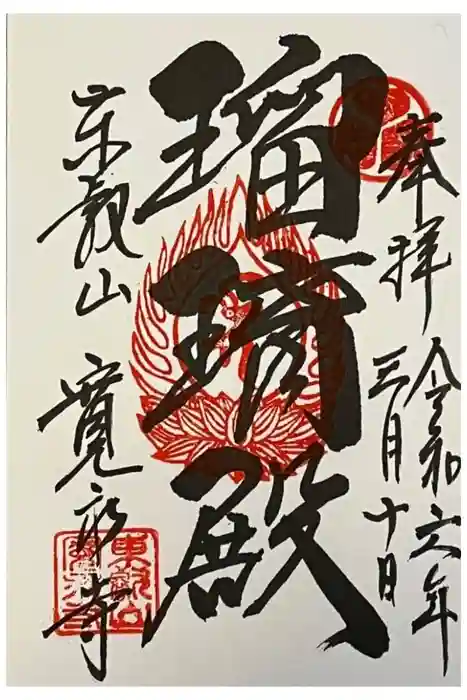 奉拝
令和六年
三月十日
瑠璃殿
東叡山
寛永寺